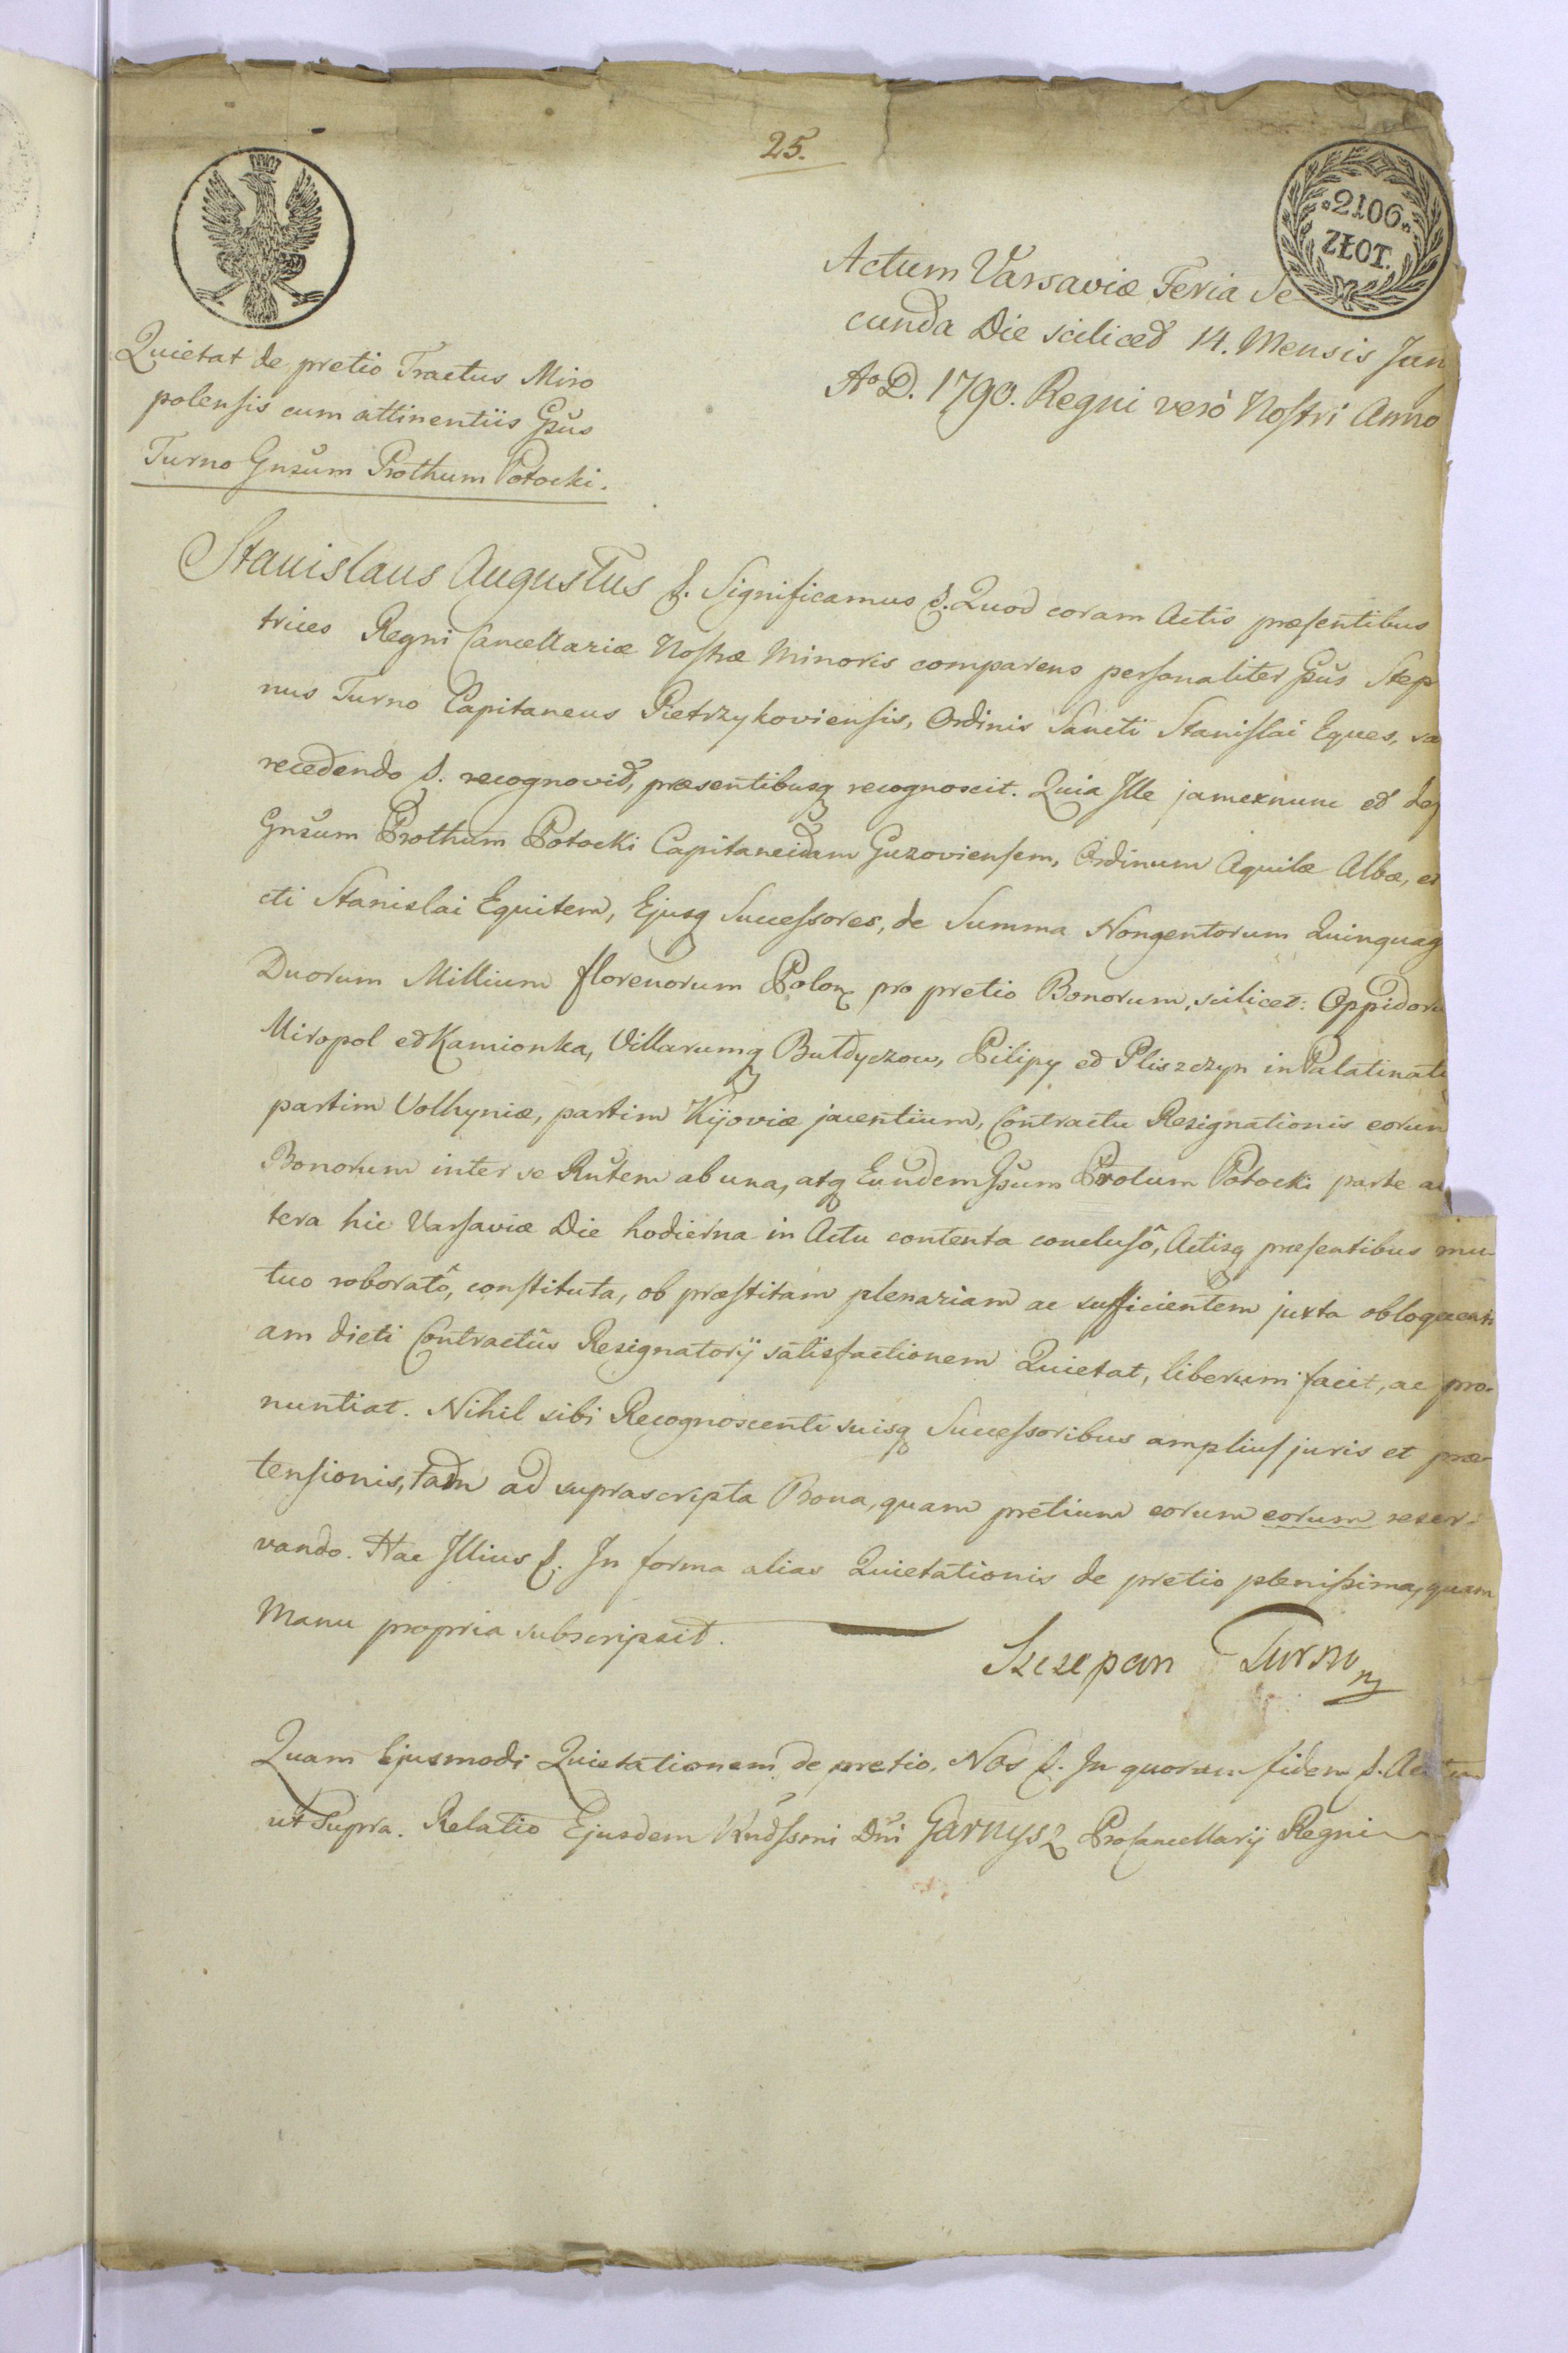 25.
2106.
ZŁOT.
Actum Varsaviæ Feria Se
cunda Die scilicet 14. Mensis Jan
Aº D. 1790. Regni verò Nostri Anno
Quietat de pretio Tractus Miro
polensis cum attinentiis Gsus
Turno Gnsum Prothum Potocki.
Stanislaus Augustus &. Significamus &. Quod coram Actis præsentibus
trices Regni Cancellariæ Nostræ Minoris comparens personaliter Gsus Step
nus Turno Capitaneus Pietrzykoviensis, Ordinis Sancti Stanislai Eques, sa
recedendo &. recognovit, præsentibusq recognoscit. Quia Ille jamexnunc et de
Gnsum Prothum Potocki Capitaneidam Guzoviensem, Ordinum Aquilæ Albæ, et
cti Stanislai Equitem, Ejusq Successores, de Summa Nongentorum Quinquag
Duorum Millium florenorum Polon pro pretio Bonorum, scilicet: Oppidoru
Miropol et Kamionka, Villarumq Bułdyczow, Pilipy et Pliszczyn in Palatinat
partim Volhyniæ, partim Kijoviæ jacentium, Contractu Resignationis eorun
Bonorum inter se Rntem ab una, atq Eundem Gsum Protum Potocki parte al
tera hic Varsaviæ Die hodierna in Actu contenta concluso, Actisq præsentibus mu-
tuo roborato, constituta, ob præstitam plenariam ac sufficientem juxta obloquenti
am dicti Contractûs Resignatorij satisfactionem Quietat, liberum facit, ac pro-
nuntiat. Nihil sibi Recognoscenti suisq Successoribus amplius juris et præ-
tensionis, tam ad suprascripta Bona, quam pretium eorum eorum reser-
vando. Hac Illius &. In forma alias Quietationis de pretio plenissima, quam
Manu propria subscripsit.
Szczepan Turno
Quam Ejusmodi Quietationem de pretio, Nos &. In quorum fidem &. Actu
ut Supra. Relatio Ejusdem Rndssmi Dni Garnysz Procancellarij Regni